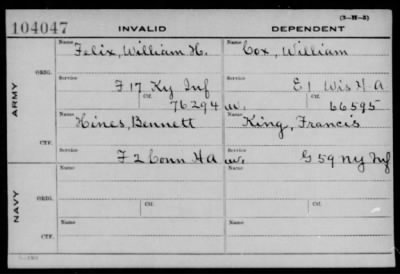 (3-H-5)
104047 INVALID DEPENDENT
Name Felix, William H. Name Cox, William
ORIG. Service F 17 Ky Inf Service E 1 Wis H A
ARMY Ctf. 76294 Ctf. w. 66595
Name Hines, Bennett Name King, Francis
CTF. Service F 2 Conn H A Service w. G 59 NY Inf
Name Name
ORIG. Service Service
NAVY Ctf. Ctf.
Name Name
CTF. Service Service